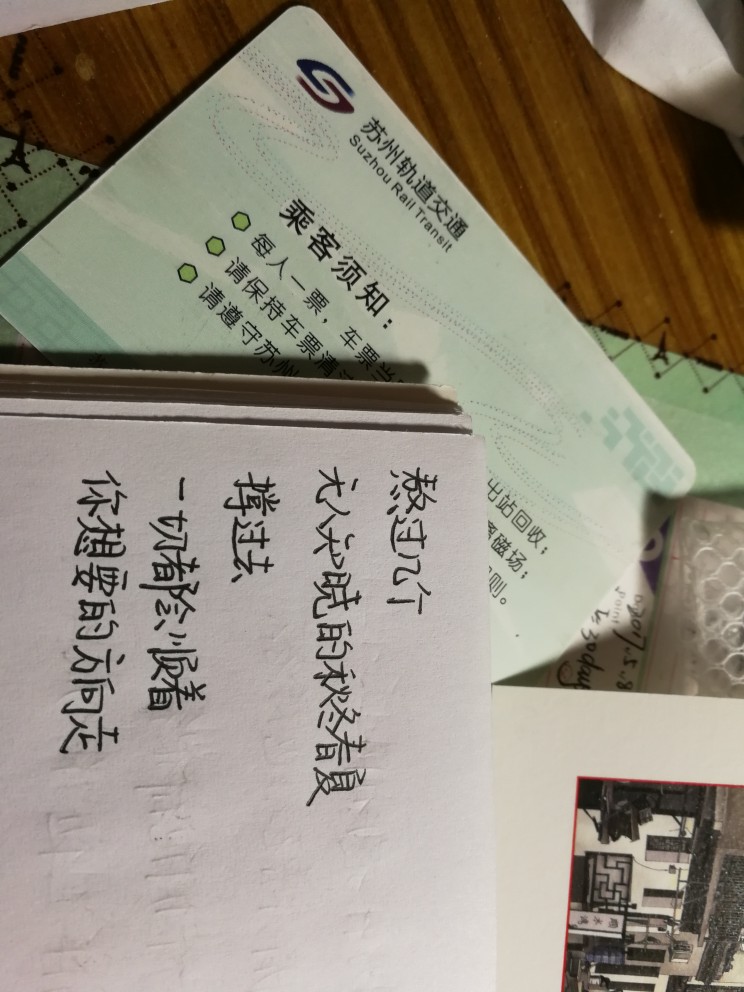 苏州轨道交通
Suzhou Rail Transit
乘客须知：
每人一票，车票当
出站回收；
请保持车票清
磁场；
请遵守苏州
则。
熬过几个
无人知晓的秋冬春夏
撑过去
一切都会顺着
你想要的方向走
2017.5.8